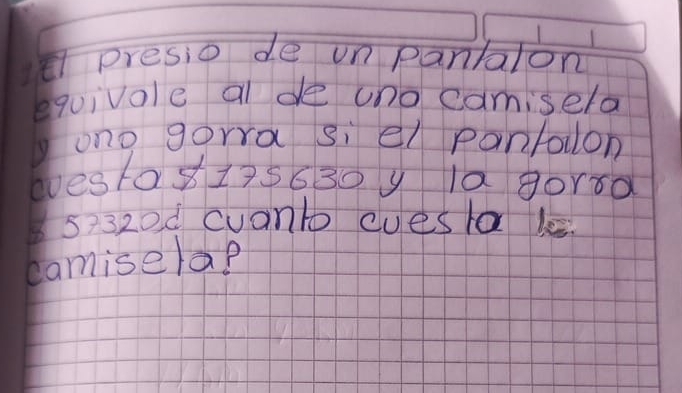 El presio de un pantalon
equivale al de una camiseta
y una gorra si el pantalon
cuesta $175630 y la gorra
$ 57320¿ cuanto cuesta la
camiseta?